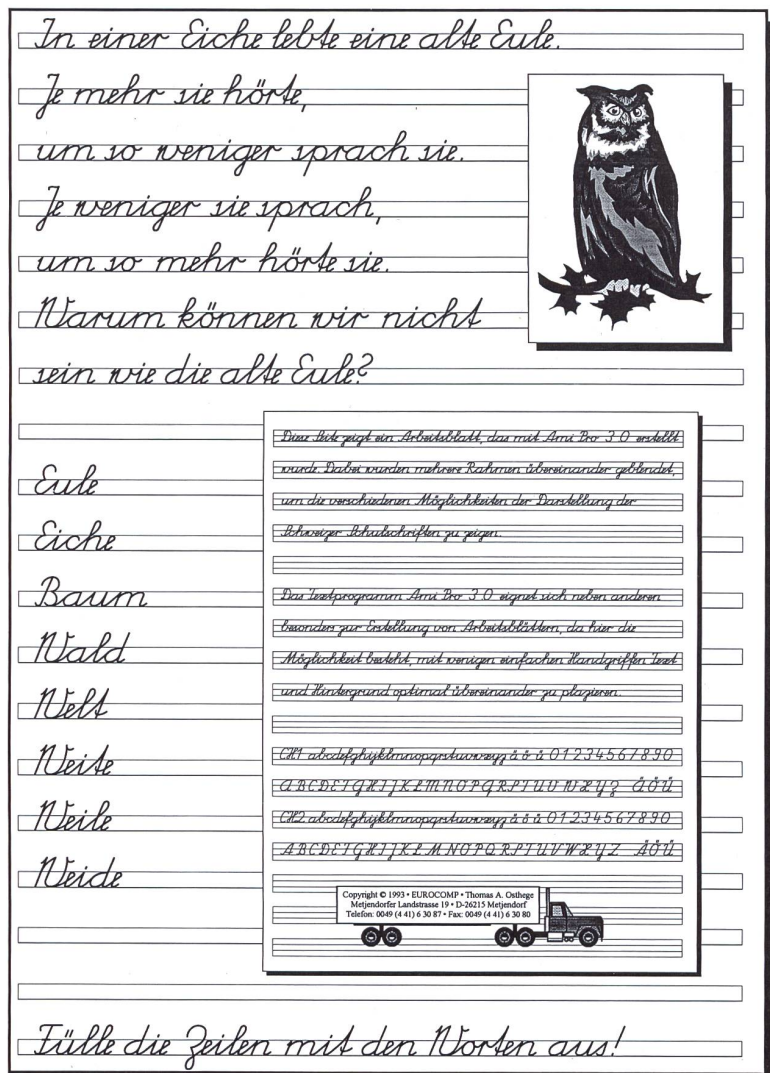 In einer Eiche lebte eine alte Eule.
Je mehr sie hörte,
um so weniger sprach sie.
Je weniger sie sprach,
um so mehr hörte sie.
Warum können wir nicht
sein wie die alte Eule?
Eule
Eiche
Baum
Wald
Welt
Weite
Weile
Weide
Diese Seite zeigt ein Arbeitsblatt, das mit Ami Pro 3 0 erstellt
wurde. Dabei wurden mehrere Rahmen übereinander geblendet,
um die verschiedenen Möglichkeiten der Darstellung der
Schweizer Schulschriften zu zeigen.
Das Textprogramm Ami Pro 3 0 eignet sich neben anderen
besonders zur Erstellung von Arbeitsblättern, da hier die
Möglichkeit besteht, mit wenigen einfachen Handgriffen Text
und Hintergrund optimal übereinander zu plazieren.
CH1 abcdefghijklmnopqrstuvwxyz ä ö ü 0 1 2 3 4 5 6 7 8 9 0
A B C D E F G H I J K L M N O P Q R S T U V W X Y Z Ä Ö Ü
CH2 abcdefghijklmnopqrstuvwxyz ä ö ü 0 1 2 3 4 5 6 7 8 9 0
A B C D E F G H I J K L M N O P Q R S T U V W X Y Z Ä Ö Ü
Copyright © 1993 • EUROCOMP • Thomas A. Osthege
Metjendorfer Landstrasse 19 • D-26215 Metjendorf
Telefon: 0049 (4 41) 6 30 87 • Fax: 0049 (4 41) 6 30 80
Fülle die Zeilen mit den Worten aus!